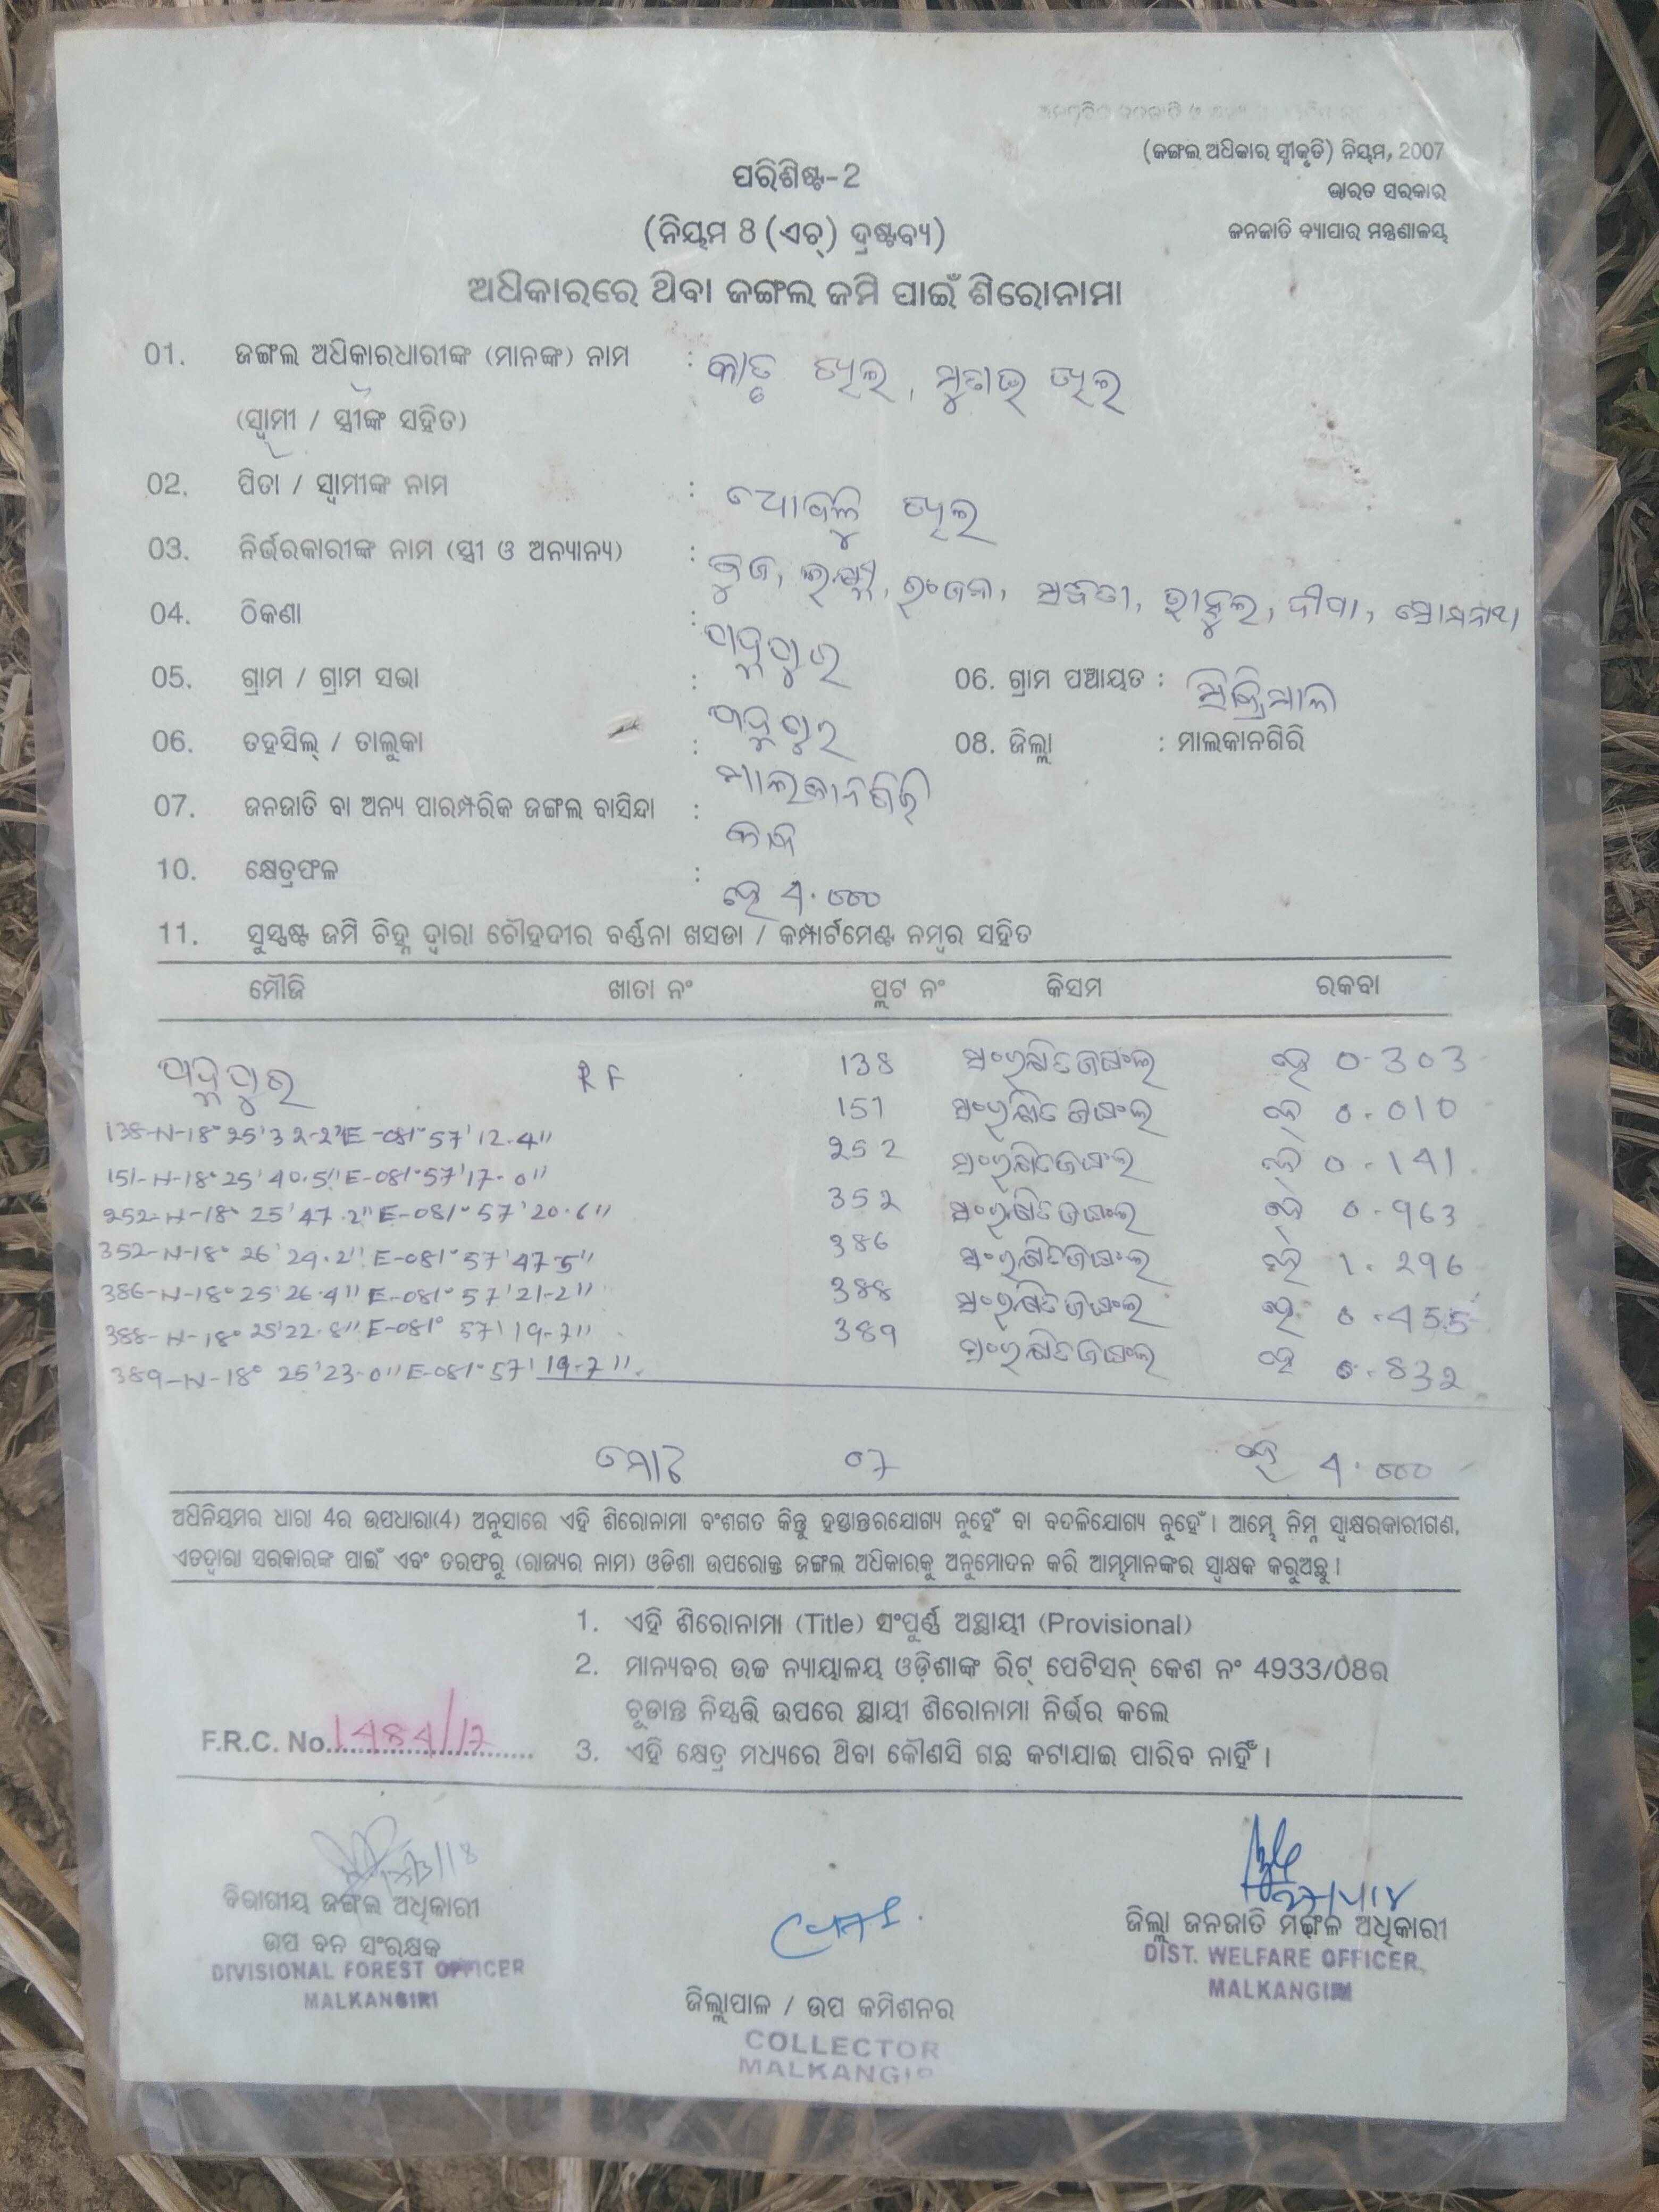 (ଜଙ୍ଗଲ ଅଧିକାର ସ୍ୱୀକୃତି) ନିୟମ, 2007
ଭାରତ ସରକାର
ଜନଜାତି ବ୍ୟାପାର ମନ୍ତ୍ରଣାଳୟ
ପରିଶିଷ୍ଟ-2
(ନିୟମ 8 (ଏଚ୍) ଦ୍ରଷ୍ଟବ୍ୟ)
ଅଧିକାରରେ ଥିବା ଜଙ୍ଗଲ ଜମି ପାଇଁ ଶିରୋନାମା
01. ଜଙ୍ଗଲ ଅଧିକାରଧାରୀଙ୍କ (ମାନଙ୍କ) ନାମ :
(ସ୍ୱାମୀ / ସ୍ତ୍ରୀଙ୍କ ସହିତ)
02. ପିତା / ସ୍ୱାମୀଙ୍କ ନାମ :
03. ନିର୍ଭରକାରୀଙ୍କ ନାମ (ସ୍ତ୍ରୀ ଓ ଅନ୍ୟାନ୍ୟ) : ଲକ୍ଷ୍ମୀ, ରଂଜନ, ରାହୁଲ, ଦୀପା, ସୋମନାଥ
04. ଠିକଣା : ପଦ୍ମପୁର
05. ଗ୍ରାମ / ଗ୍ରାମ ସଭା : ପଦ୍ମପୁର 06. ଗ୍ରାମ ପଞ୍ଚାୟତ :
06. ତହସିଲ୍ / ତାଲୁକା : ମାଲକାନଗିରି 08. ଜିଲ୍ଲା : ମାଲକାନଗିରି
07. ଜନଜାତି ବା ଅନ୍ୟ ପାରମ୍ପରିକ ଜଙ୍ଗଲ ବାସିନ୍ଦା :
10. କ୍ଷେତ୍ରଫଳ : ହେ 4.000
11. ସୁସ୍ପଷ୍ଟ ଜମି ଚିହ୍ନ ଦ୍ୱାରା ଚୌହଦୀର ବର୍ଣ୍ଣନା ଖସଡା / କମ୍ପାର୍ଟମେଣ୍ଟ ନମ୍ବର ସହିତ
ମୌଜି ଖାତା ନଂ ପ୍ଲଟ ନଂ କିସମ ରକବା
ପଦ୍ମପୁର RF 138 ସଂରକ୍ଷିତ ଜଙ୍ଗଲ ହେ 0.303
138-N-18° 25' 32.2" E-081° 57' 12.4" 151 ସଂରକ୍ଷିତ ଜଙ୍ଗଲ ହେ 0.010
151-N-18° 25' 40.5" E-081° 57' 17.0" 252 ସଂରକ୍ଷିତ ଜଙ୍ଗଲ ହେ 0.141
252-N-18° 25' 47.2" E-081° 57' 20.6" 352 ସଂରକ୍ଷିତ ଜଙ୍ଗଲ ହେ 0.963
352-N-18° 26' 24.2" E-081° 57' 47.5" 386 ସଂରକ୍ଷିତ ଜଙ୍ଗଲ ହେ 1.296
386-N-18° 25' 26.4" E-081° 57' 21.2" 388 ସଂରକ୍ଷିତ ଜଙ୍ଗଲ ହେ 0.455
388-N-18° 25' 22.8" E-081° 57' 19.7" 389 ସଂରକ୍ଷିତ ଜଙ୍ଗଲ ହେ 0.832
389-N-18° 25' 23.0" E-081° 57' 19.7"
ମୋଟ 07 ହେ 4.000
ଅଧିନିୟମର ଧାରା 4ର ଉପଧାରା(4) ଅନୁସାରେ ଏହି ଶିରୋନାମା ବଂଶଗତ କିନ୍ତୁ ହସ୍ତାନ୍ତରଯୋଗ୍ୟ ନୁହେଁ ବା ବଦଳିଯୋଗ୍ୟ ନୁହେଁ। ଆମ୍ଭେ ନିମ୍ନ ସ୍ୱାକ୍ଷରକାରୀଗଣ,
ଏତଦ୍ୱାରା ସରକାରଙ୍କ ପାଇଁ ଏବଂ ତରଫରୁ (ରାଜ୍ୟର ନାମ) ଓଡିଶା ଉପରୋକ୍ତ ଜଙ୍ଗଲ ଅଧିକାରକୁ ଅନୁମୋଦନ କରି ଆମ୍ଭମାନଙ୍କର ସ୍ୱାକ୍ଷକ କରୁଅଛୁ।
1. ଏହି ଶିରୋନାମା (Title) ସଂପୁର୍ଣ୍ଣ ଅସ୍ଥାୟୀ (Provisional)
2. ମାନ୍ୟବର ଉଚ୍ଚ ନ୍ୟାୟାଳୟ ଓଡ଼ିଶାଙ୍କ ରିଟ୍ ପେଟିସନ୍ କେଶ ନଂ 4933/08ର
ଚୂଡାନ୍ତ ନିସ୍ପତ୍ତି ଉପରେ ସ୍ଥାୟୀ ଶିରୋନାମା ନିର୍ଭର କଲେ
F.R.C. No. 1484/17
3. ଏହି କ୍ଷେତ୍ର ମଧ୍ୟରେ ଥିବା କୌଣସି ଗଛ କଟାଯାଇ ପାରିବ ନାହିଁ।
ବିଭାଗୀୟ ଜଙ୍ଗଲ ଅଧିକାରୀ
ଉପ ବନ ସଂରକ୍ଷକ
DIVISIONAL FOREST OFFICER
MALKANGIRI
ଜିଲ୍ଲାପାଳ / ଉପ କମିଶନର
COLLECTOR
MALKANGIR
ଜିଲ୍ଲା ଜନଜାତି ମଙ୍ଗଳ ଅଧିକାରୀ
DIST. WELFARE OFFICER
MALKANGIRI